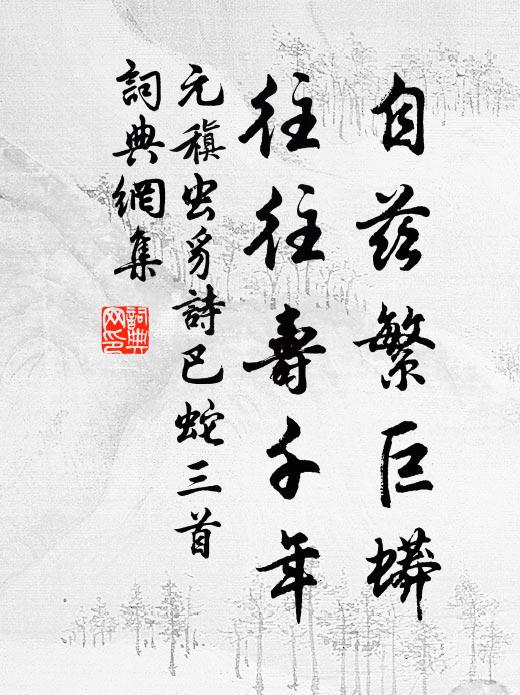 自茲繁巨蟒
往往壽千年
元稹虫豸詩巴蛇三首
詞典網集
詞典
网印